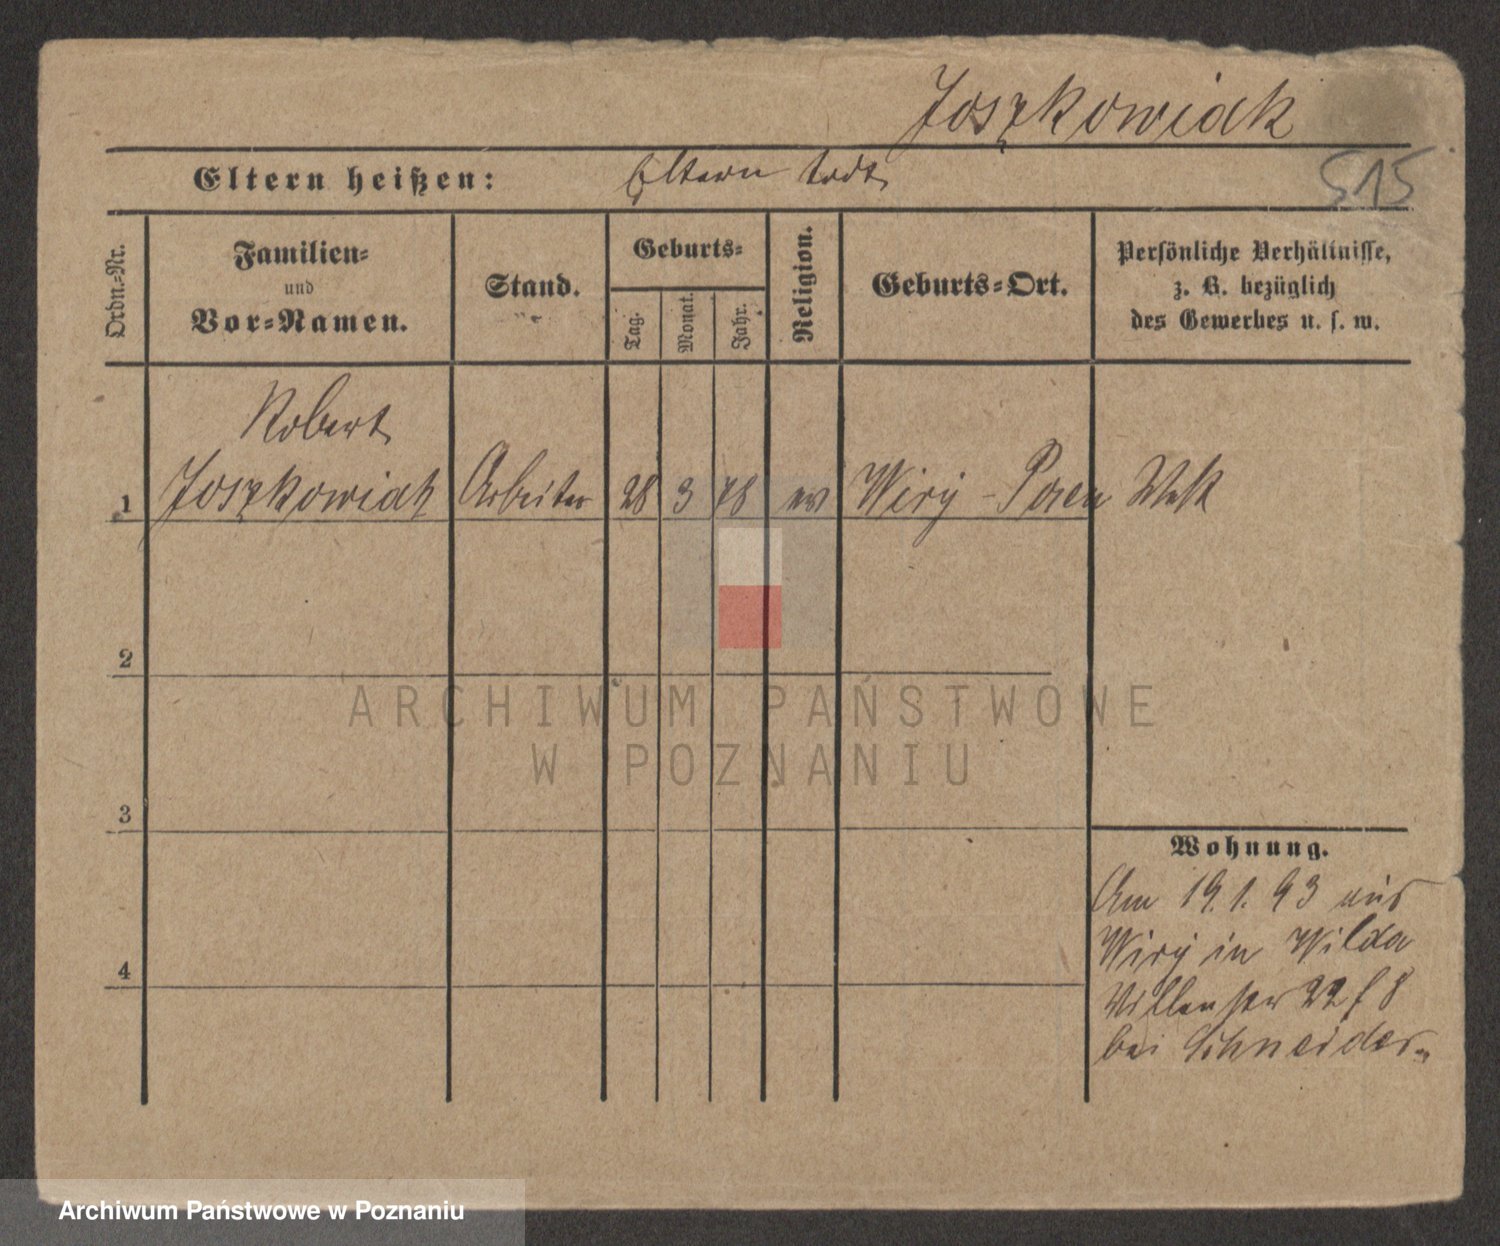 Joszkowiak
Eltern heißen: Eltern todt
515
Ordn.-Nr.
Familien-
und
Vor-Namen.
Stand.
Geburts-
Tag.
Monat.
Jahr.
Religion.
Geburts-Ort.
Persönliche Verhältnisse,
z. B. bezüglich
des Gewerbes u. s. w.
Robert
1 Joszkowiak Arbeiter 28 3 78 ev Wiry - Posen
2
ARCHIWUM PAŃSTWOWE
W POZNANIU
3
Wohnung.
Am 19.1.93 aus
Wiry in Wilda
4
22 8
bei Schneider
Archiwum Państwowe w Poznaniu